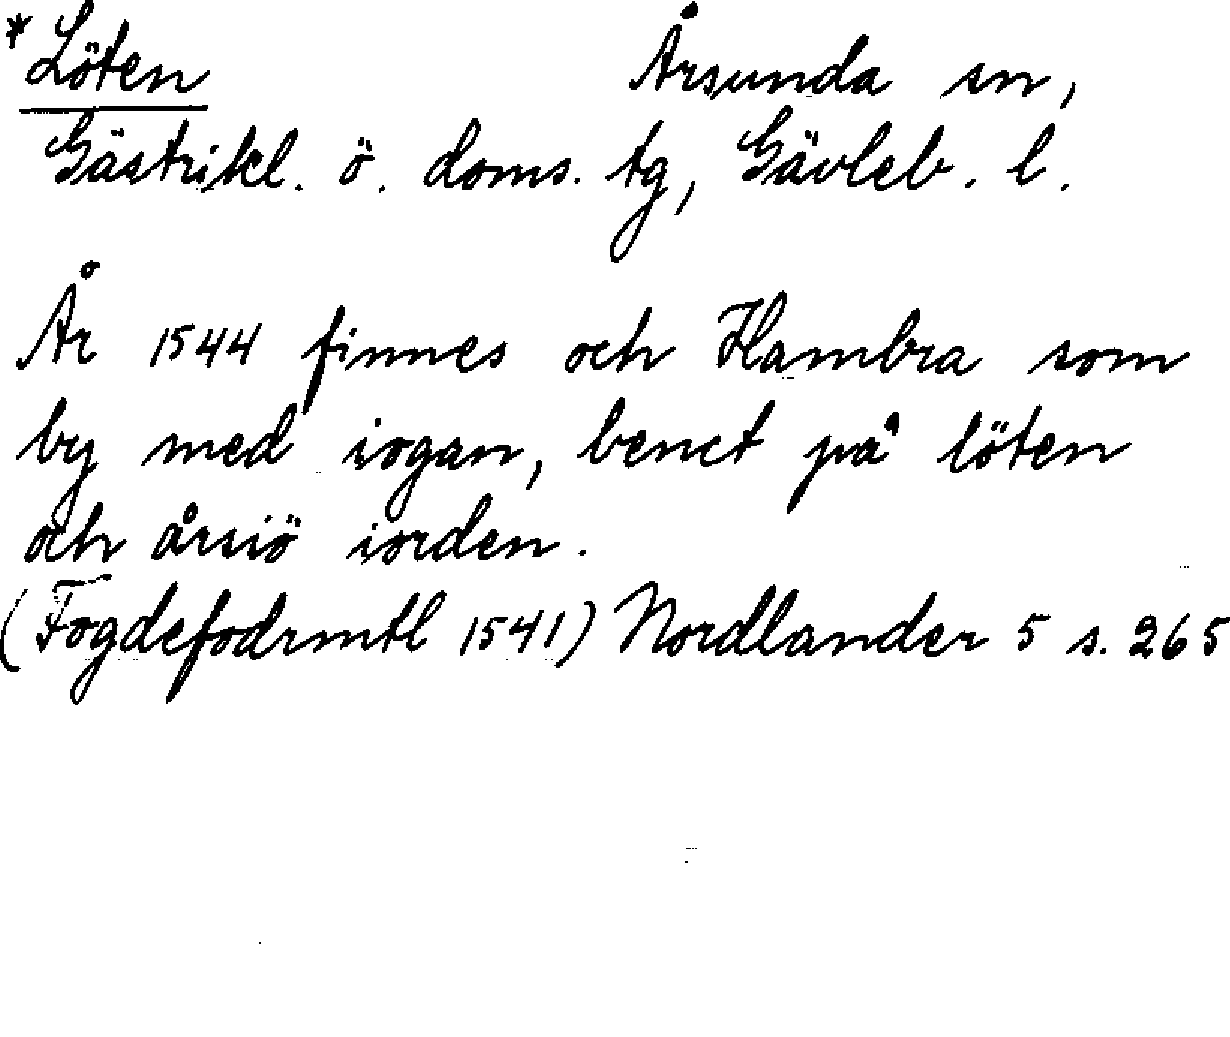 *Löten Årsunda sn,
Gästrikl. ö. doms. tg, Gävleb. l.
År 1544 finnes och Hambra som
by med iogan, benct på löten
och årsiö iorden.
(Fogdefodrmtl 1541) Nordlander 5 s. 265